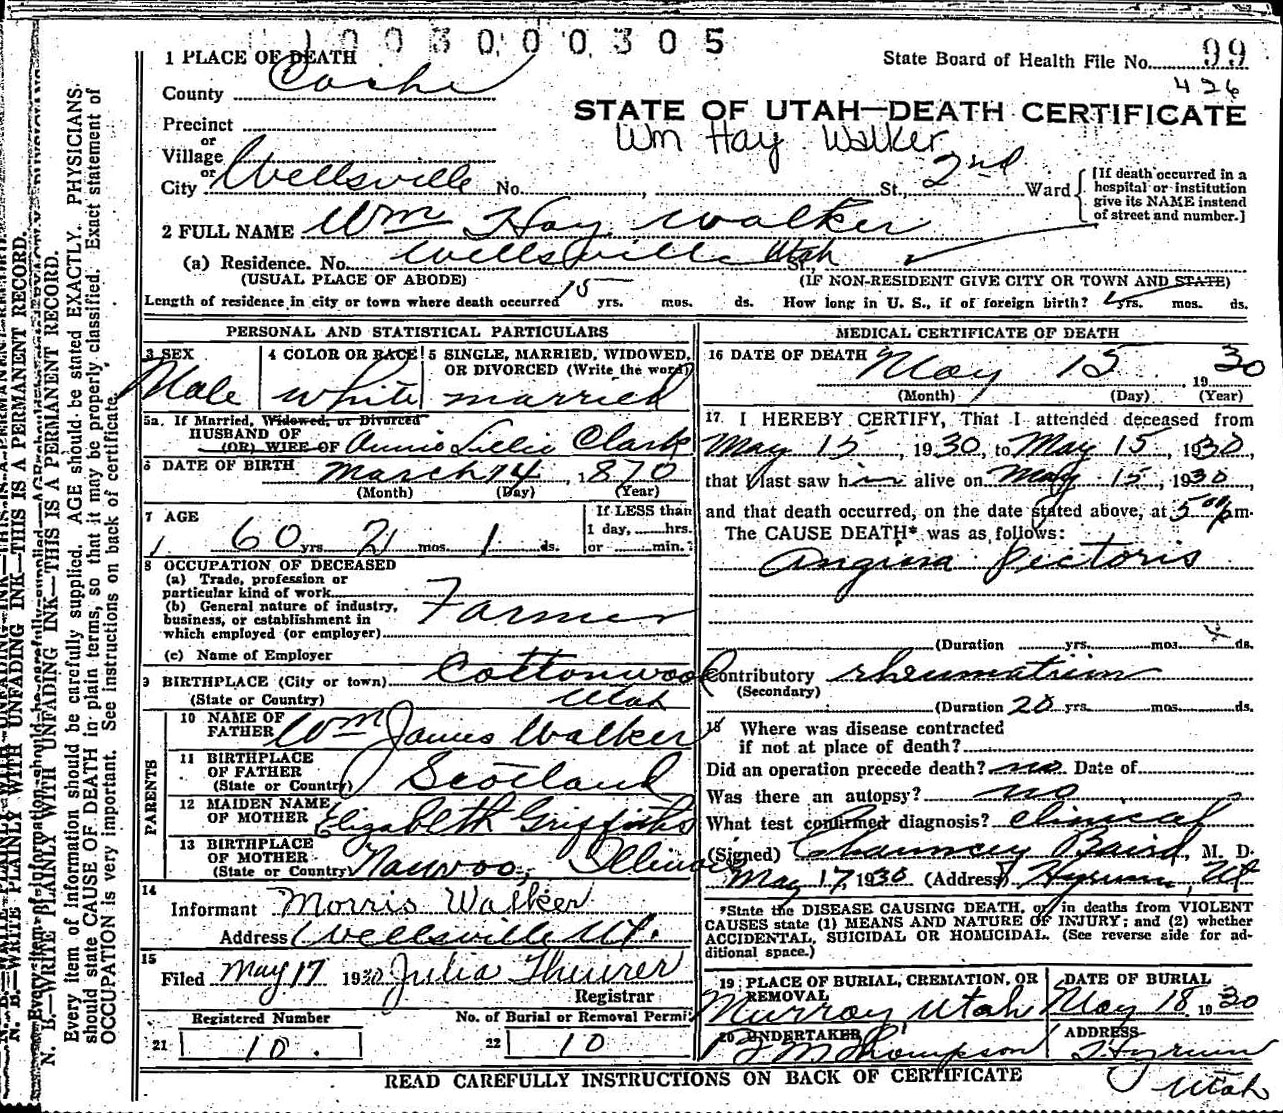 1003000305
1 PLACE OF DEATH
State Board of Health File No. 99
County Cache
426
STATE OF UTAH—DEATH CERTIFICATE
Precinct
Wm Hay Walker
or
Village
or
City Wellsville No. , St., 2nd Ward
[If death occurred in a
hospital or institution
give its NAME instead
of street and number.]
2 FULL NAME Wm Hay Walker
(a) Residence. No. Wellsville Utah St.
(USUAL PLACE OF ABODE) (IF NON-RESIDENT GIVE CITY OR TOWN AND STATE)
Length of residence in city or town where death occurred 15 yrs. mos. ds. How long in U. S., if of foreign birth? yrs. mos. ds.
PERSONAL AND STATISTICAL PARTICULARS
3 SEX
Male
4 COLOR OR RACE
white
5 SINGLE, MARRIED, WIDOWED,
OR DIVORCED (Write the word)
married
5a. If Married, Widowed, or Divorced
HUSBAND OF
(OR) WIFE OF Annie Lillie Clark
6 DATE OF BIRTH March 14, 1870
(Month) (Day) (Year)
7 AGE
60 yrs. 2 mos. 1 ds.
If LESS than
1 day, hrs.
or min.
8 OCCUPATION OF DECEASED
(a) Trade, profession or
particular kind of work
(b) General nature of industry,
business, or establishment in
which employed (or employer)
Farmer
(c) Name of Employer
9 BIRTHPLACE (City or town) Cottonwood
(State or Country) Utah
PARENTS
10 NAME OF
FATHER Wm James Walker
11 BIRTHPLACE
OF FATHER
(State or Country) Scotland
12 MAIDEN NAME
OF MOTHER Elizabeth Griffiths
13 BIRTHPLACE
OF MOTHER
(State or Country) Nauvoo, Illinois
14
Informant Morris Walker
Address Wellsville Ut.
15
Filed May 17 1930 Julia Theurer
Registrar
Registered Number
21 10.
No. of Burial or Removal Permit
22 10
MEDICAL CERTIFICATE OF DEATH
16 DATE OF DEATH May 15, 1930
(Month) (Day) (Year)
17 I HEREBY CERTIFY, That I attended deceased from
May 15, 1930, to May 15, 1930,
that I last saw him alive on May 15, 1930,
and that death occurred, on the date stated above, at 5 pm.
The CAUSE DEATH* was as follows:
Angina Pectoris
(Duration yrs. mos. ds.
Contributory rheumatism
(Secondary)
(Duration 20 yrs. mos. ds.
18 Where was disease contracted
if not at place of death?
Did an operation precede death? no Date of
Was there an autopsy? no
What test confirmed diagnosis? clinical
(Signed) Chauncey Baird, M. D.
May 17, 1930 (Address) Hyrum, Ut
*State the DISEASE CAUSING DEATH, or in deaths from VIOLENT
CAUSES state (1) MEANS AND NATURE OF INJURY; and (2) whether
ACCIDENTAL, SUICIDAL OR HOMICIDAL. (See reverse side for ad-
ditional space.)
19 PLACE OF BURIAL, CREMATION, OR
REMOVAL
Murray Utah
DATE OF BURIAL
May 18, 1930
20 UNDERTAKER
Thompson
ADDRESS
Hyrum
Utah
READ CAREFULLY INSTRUCTIONS ON BACK OF CERTIFICATE
N. B.—WRITE PLAINLY WITH UNFADING INK—THIS IS A PERMANENT RECORD.
N. B.—WRITE PLAINLY WITH UNFADING INK—THIS IS A PERMANENT RECORD.
Every item of information should be carefully supplied. AGE should be stated EXACTLY. PHYSICIANS
should state CAUSE OF DEATH in plain terms, so that it may be properly classified. Exact statement of
OCCUPATION is very important. See instructions on back of certificate.